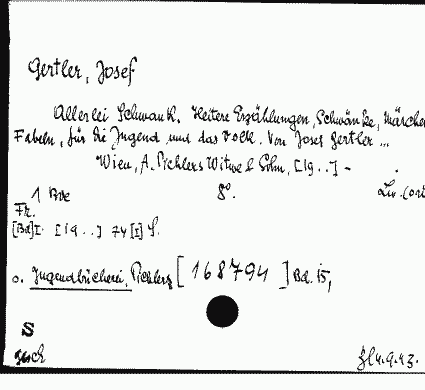 Gertler, Josef
Allerlei Schwank. Heitere Erzählungen, Schwänke, Märchen
Fabeln, für die Jugend und das Volk. Von Josef Gertler ...
Wien, A. Pichlers Witwe & Sohn, [19..] -
1 Bde 8°. Lw. (ori
Fr.
[Bd] I. [19..] 74 [I] S.
o. Jugendbücherei, Pichlers [168794] Bd. 15,
S